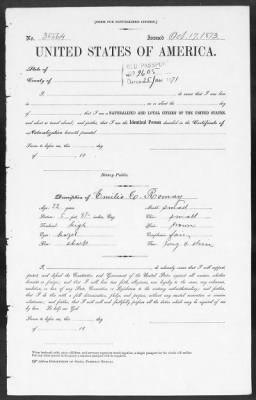 [FORM FOR NATURALIZED CITIZEN.]
No. 35664 Issued Oct. 17, 1873
UNITED STATES OF AMERICA.
State of
County of
OLD PASSPORT
No 9605
Dated 25 Jan 1871
I, do swear that I was born
in on or about the day
of ; that I am a NATURALIZED AND LOYAL CITIZEN OF THE UNITED STATES,
and about to travel abroad; and further, that I am the Identical Person described in the Certificate of
Naturalization herewith presented.
Sworn to before me, this day
of 18
Notary Public.
Description of Emilio C. Romay
Age: 22 years Mouth: small
Stature: 5 feet inches, Eng. Chin: small
Forehead: high Hair: brown
Eyes: hazel Complexion: fair
Nose: short Face: long & thin
I, do solemnly swear that I will support, protect,
and defend the Constitution and Government of the United States against all enemies, whether
domestic or foreign; and that I will bear true faith, allegiance, and loyalty to the same, any ordinance,
resolution, or law of any State, Convention, or Legislature to the contrary notwithstanding; and further,
that I do this with a full determination, pledge, and purpose, without any mental reservation or evasion
whatsoever; and further, that I will well and faithfully perform all the duties which may be required of me
by law. So help me God.
Sworn to before me, this day
of 18